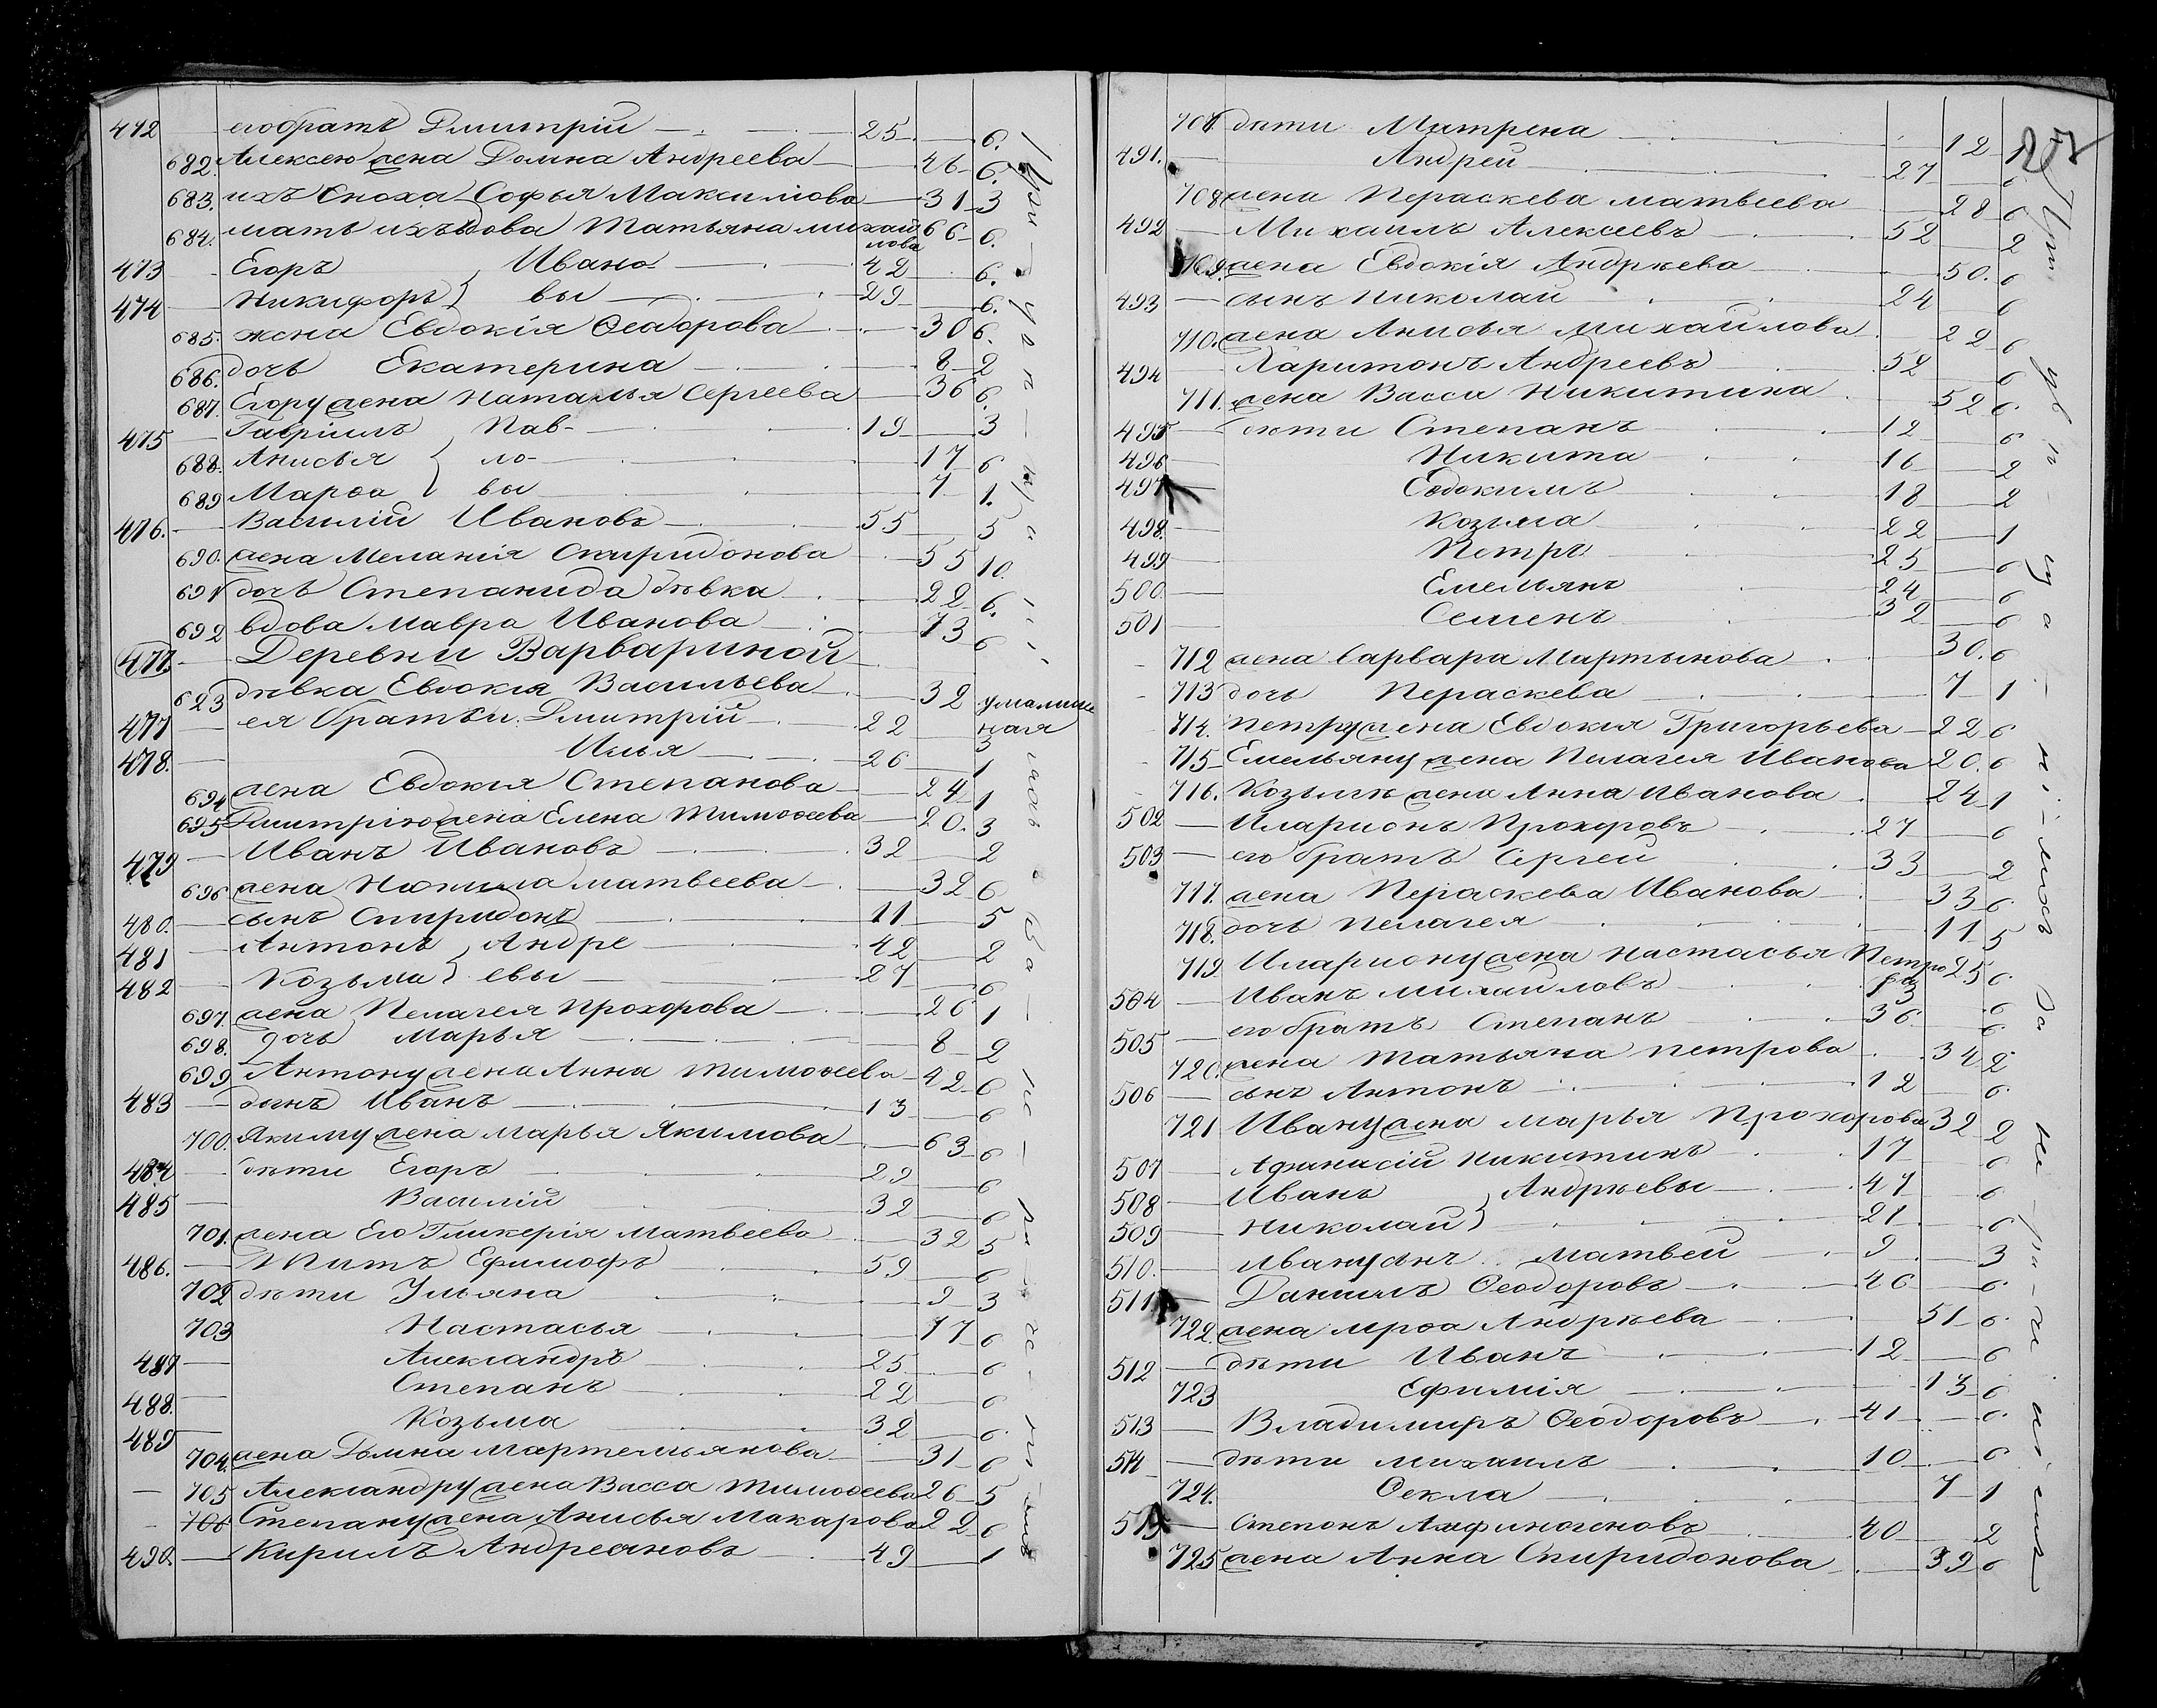 472 — его братъ Дмитрій — 25 — 6.
682. Алексею жена Домна Андреева — 46 6.
683. ихъ сноха Софья Максимова — 31 3
684. мать ихъ вдова Татьяна михайлова 66 6.
473 — Егоръ } Ивано — 42 6.
474 — Никифоръ } вы — 29 6.
685. жена Евдокія Ѳеодорова — 30 6.
686. дочь Екатерина — 8 2
687. Егору жена Наталья Сергеева — 36 6.
475 — Гавріилъ } Пав- 19 3
688. Анисья } ло- 17 6
689 Марѳа } вы 7 1.
476. — Василій Ивановъ — 55 5
690. жена Меланія Спиридонова — 55 10.
691 дочь Степанида дѣвка — 22 6.
692 вдова Мавра Иванова — 73 6
477. — Деревни Варвариной
623 дѣвка Евдокія Васильева — 32
477 — ея братьи Дмитрій — 22 3
478. — Илья — 26 1
694 жена Евдокія Степанова — 24 1
695 Дмитрію жена Елена Тимоѳеева — 20. 3
479 — Иванъ Ивановъ — 32 2
696 жена матвеева — 32 6
480. — сынъ Спиридонъ — 11 5
481 — Антонъ } Андре 42 2
482 — Козьма } евы — 27 6
697. жена Пелагея Прохорова — 26 1
698. дочь Марья — 8 2
699 Антону жена Анна Тимоѳеева — 42 6
483 — сынъ Иванъ — 13 6
700. Якиму жена Марья Якимова — 63 6
484 — дѣти Егоръ — 29 6
485 — Василій 32 6
701. жена Его Гликерія Матвеева 32 5
486. — Титъ Ефимофъ 59 6
702 дѣти Ульяна 9 3
703 Настасья 17 6
487 — Александръ 25 6
488. — Степанъ 22 6
489 — Козьма 32 6
704. жена Домна Мартемьянова — 31 6
— 705 Александру жена Васса Тимоѳеева 26 5
706 Степану жена Анисья Макарова 22 6
490. — Кирилъ Андреяновъ — 49 1
дѣти Матрена 12 1
491. — Андрей 27 6
708 жена Пераскева матвеева 28 6
492 — Михаилъ Алексеевъ 52 2
709. жена Евдокія Андрѣева 50. 6
493 — сынъ Николай 24 6
710. жена Анисья Михайлова 22 6
494 — Харитонъ Андреевъ 52 6
711. жена Васса Никитина 52 6
495 — дѣти Степанъ 12 6
496 — Никита 16 2
497 — Евдокимъ 18 2
498. — Козьма 22 1
499 — Петръ 25 6
500 — Емельянъ 24 6
501 — Семенъ 32 6
712 жена варвара Мартынова 30. 6
713 дочь Пераскева 7 1
714. петру жена Евдокія Григорьева — 22 6
715 Емельяну жена Пелагея Иванова 20. 6
716. Козьмѣ жена Анна Иванова 24 1
502 — Иларионъ Прохоровъ 27 6
503 — его братъ Сергей 33 2
717. жена Пераскева Иванова — 33 6
718. дочь Пелагея 11 5
719. Илариону жена Настасья Петрова 25 6
504 — Иванъ михаиловъ 6
505 — его братъ Степанъ 36 6
720. жена Татьяна петрова 34 2
506 — сынъ Антонъ 12 6
721 Ивану жена марья Прохорова 32 2
507 — Афанасій Никитинъ 17 6
508 — Иванъ } Андрѣевы — 47 6
509 — Николай } 21 6
510. — ивану сынъ Матвей 9 3
511 — Данилъ Ѳеодоровъ 46 6
722. жена мрѳа Андрѣева 51 6
512 — дѣти Иванъ 12 6
723 Ефимія 13 6
513 — Владимиръ Ѳеодоровъ — 41 6
514 — дѣти михаилъ 10 6
724. Ѳекла 7 1
515 — Степонъ Амфиногеновъ 40 2
725 жена Анна Спиридонова 39 6